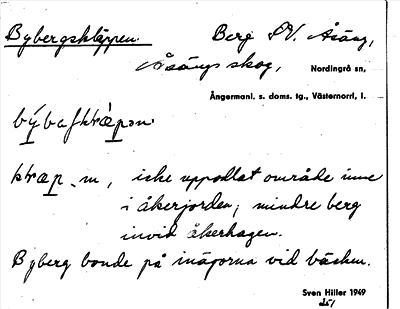 Bybergskläppen. Berg SV. Åsäng,
Åsängs skog, Nordingrå sn,
Ångermanl. s. doms. tg., Västernorrl, l.
klæp m, icke uppodlat område inne
i åkerjorden; mindre berg
invid åkerhagen.
Byberg bonde på inägorna vid bäcken.
Sven Hiller 1949